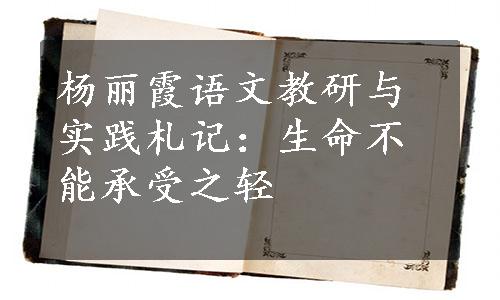 杨丽霞语文教研与
实践札记：生命不
能承受之轻